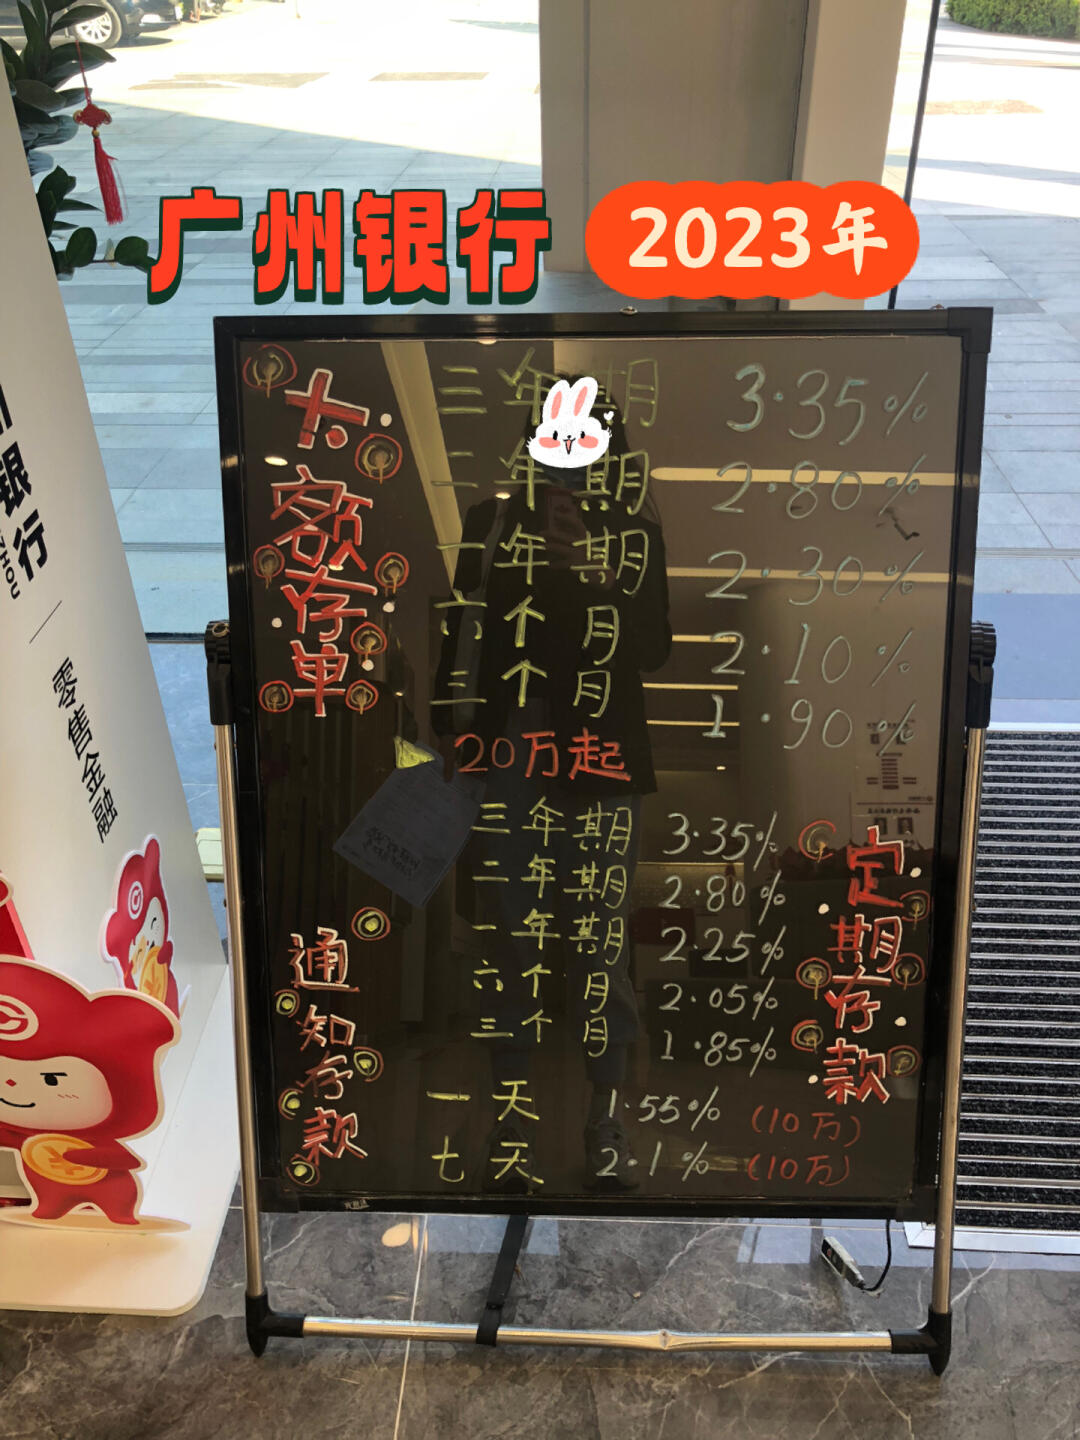 广州银行
2023年
大额存单
三年期 3.35%
二年期 2.80%
一年期 2.30%
六个月 2.10%
三个月 1.90%
20万起
定期存款
三年期 3.35%
二年期 2.80%
一年期 2.25%
六个月 2.05%
三个月 1.85%
通知存款
一天 1.55% (10万)
七天 2.1% (10万)
银行
零售金融